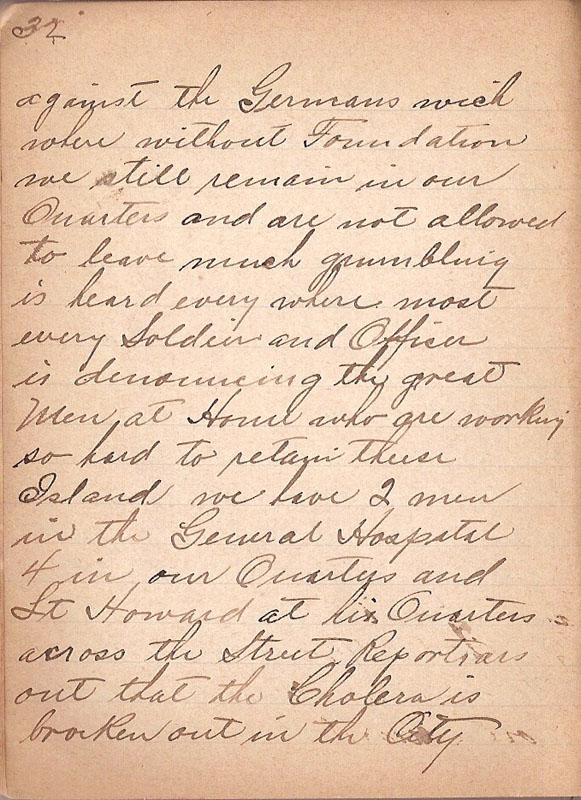 32
against the Germans wich
where without Foundation
we still remain in our
Quarters and are not allowed
to leave much grumbling
is heard every where. most
every Soldier and Officer
is denouncing the great
Men at Home who are working
so hard to retain these
Island we have 2 men
in the General Hospital
4 in our Quarters and
Lt Howard at his Quarters
across the Street Report
out that the Cholera is
broken out in the City